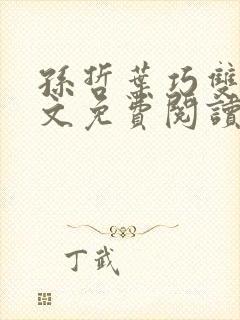 孫哲葉巧雙
文免費閱讀
丁武